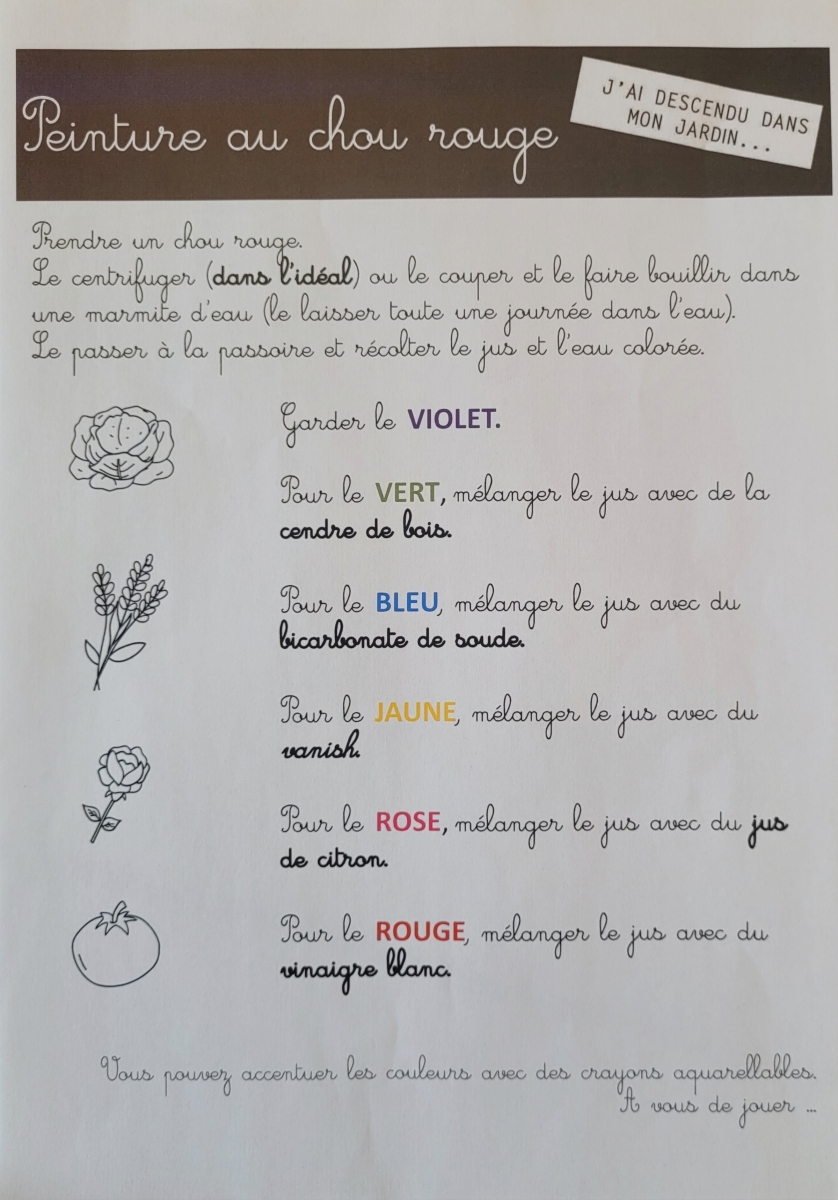 Peinture au chou rouge
J'AI DESCENDU DANS
MON JARDIN...
Prendre un chou rouge.
Le centrifuger (dans l'idéal) ou le couper et le faire bouillir dans
une marmite d'eau (le laisser toute une journée dans l'eau).
Le passer à la passoire et récolter le jus et l'eau colorée.
Garder le VIOLET.
Pour le VERT, mélanger le jus avec de la
cendre de bois.
Pour le BLEU, mélanger le jus avec du
bicarbonate de soude.
Pour le JAUNE, mélanger le jus avec du
vanish.
Pour le ROSE, mélanger le jus avec du jus
de citron.
Pour le ROUGE, mélanger le jus avec du
vinaigre blanc.
Vous pouvez accentuer les couleurs avec des crayons aquarellables.
A vous de jouer ...